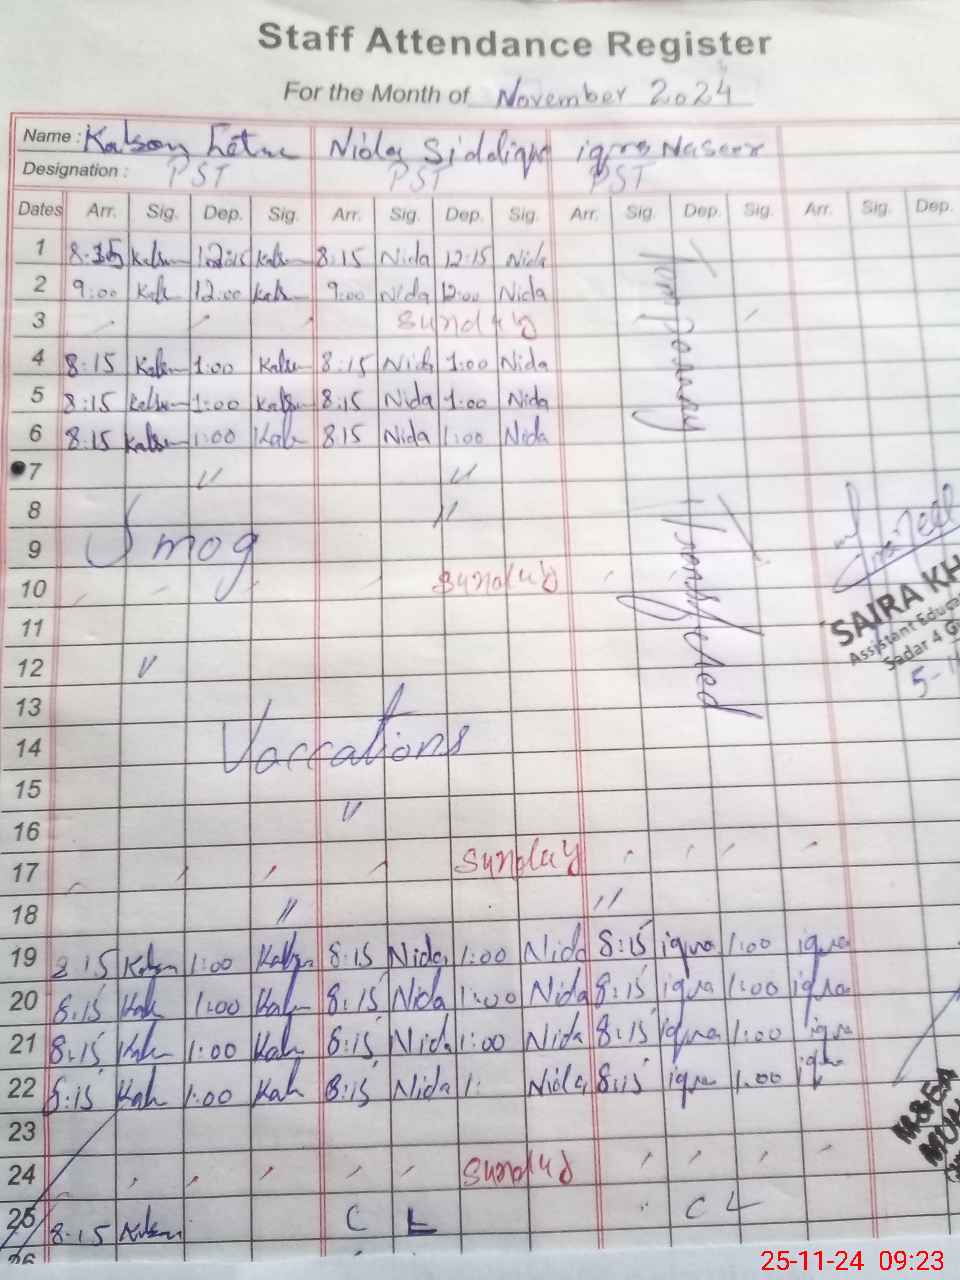 Staff Attendance Register
For the Month of November 2024
Name : Kalsom Nida Siddiqui iqra Naseer
Designation : PST PST PST
Dates Arr. Sig. Dep. Sig. Arr. Sig. Dep. Sig. Arr. Sig. Dep. Sig. Arr. Sig. Dep.
1 8:15 Kalsom 12:15 Kalsom 8:15 Nida 12:15 Nida
2 9:00 Kals 12:00 Kals 9:00 Nida 12:00 Nida
3 Sunday
4 8:15 Kalsom 1:00 Kalsom 8:15 Nida 1:00 Nida
5 8:15 Kalsom 1:00 Kalsom 8:15 Nida 1:00 Nida
6 8:15 Kalsom 1:00 Kals 8:15 Nida 1:00 Nida
7 〃 〃
8 〃
9 Smog
10 Sunday
11
12 〃
13
14 Vaccations
15
16 〃
17 Sunday
18 〃 〃
19 8:15 Kalsom 1:00 Kalsom 8:15 Nida 1:00 Nida 8:15 iqra 1:00 iqra
20 8:15 Kals 1:00 Kals 8:15 Nida 1:00 Nida 8:15 iqra 1:00 iqra
21 8:15 Kals 1:00 Kals 8:15 Nida 1:00 Nida 8:15 iqra 1:00 iqra
22 8:15 Kals 1:00 Kals 8:15 Nida 1: Nida 8:15 iqra 1:00 iqra
23
24 Sunday
25 8:15 Kalsom C L C L
26
Temporary Transfered
SAIRA KH
Assistant Educa
Sadar 4 G
5-1
M&EA
25-11-24 09:23